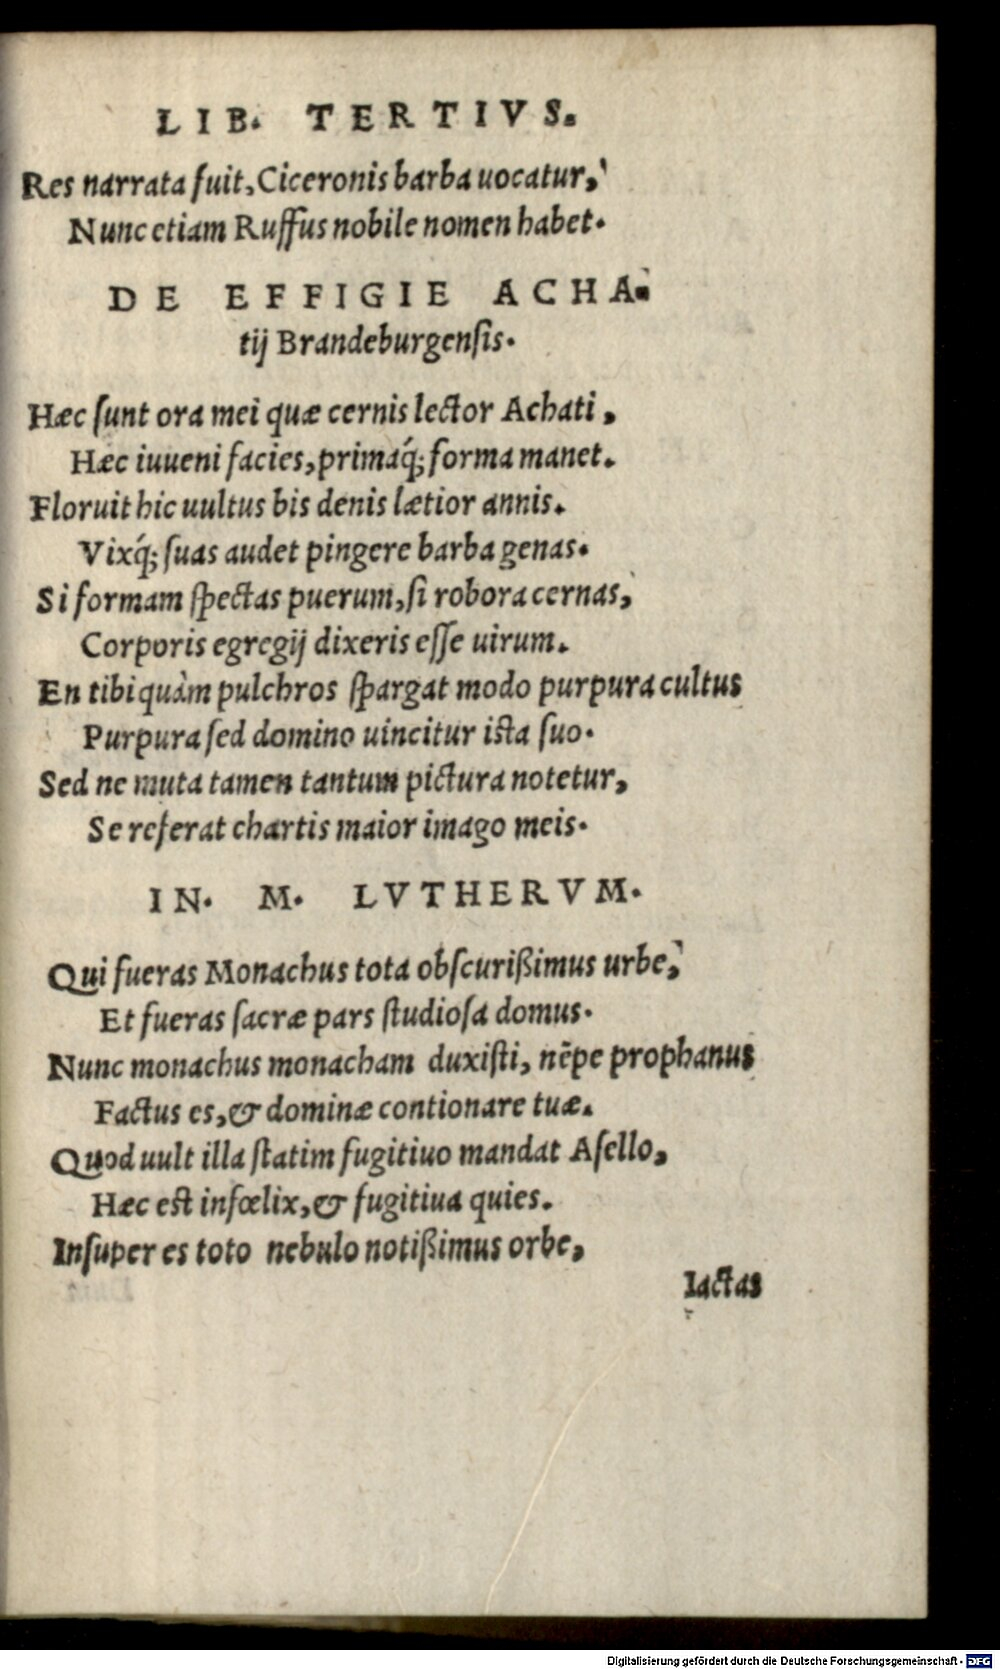 LIB. TERTIVS.
Res narrata fuit, Ciceronis barba uocatur,
Nunc etiam Ruffus nobile nomen habet.
DE EFFIGIE ACHA-
tij Brandeburgensis.
Hæc sunt ora mei quæ cernis lector Achati,
Hæc iuueni facies, primaq́; forma manet.
Floruit hic uultus bis denis lætior annis.
Vixq́; suas audet pingere barba genas.
Si formam spectas puerum, si robora cernas,
Corporis egregij dixeris esse uirum.
En tibi quàm pulchros spargat modo purpura cultus
Purpura sed domino uincitur ista suo.
Sed ne muta tamen tantum pictura notetur,
Se referat chartis maior imago meis.
IN. M. LVTHERVM.
Qui fueras Monachus tota obscurißimus urbe,
Et fueras sacræ pars studiosa domus.
Nunc monachus monacham duxisti, nēpe prophanus
Factus es, & dominæ contionare tuæ.
Quod uult illa statim fugitiuo mandat Asello,
Hæc est infœlix, & fugitiua quies.
Insuper es toto nebulo notißimus orbe,
Iactas
Digitalisierung gefördert durch die Deutsche Forschungsgemeinschaft - DFG